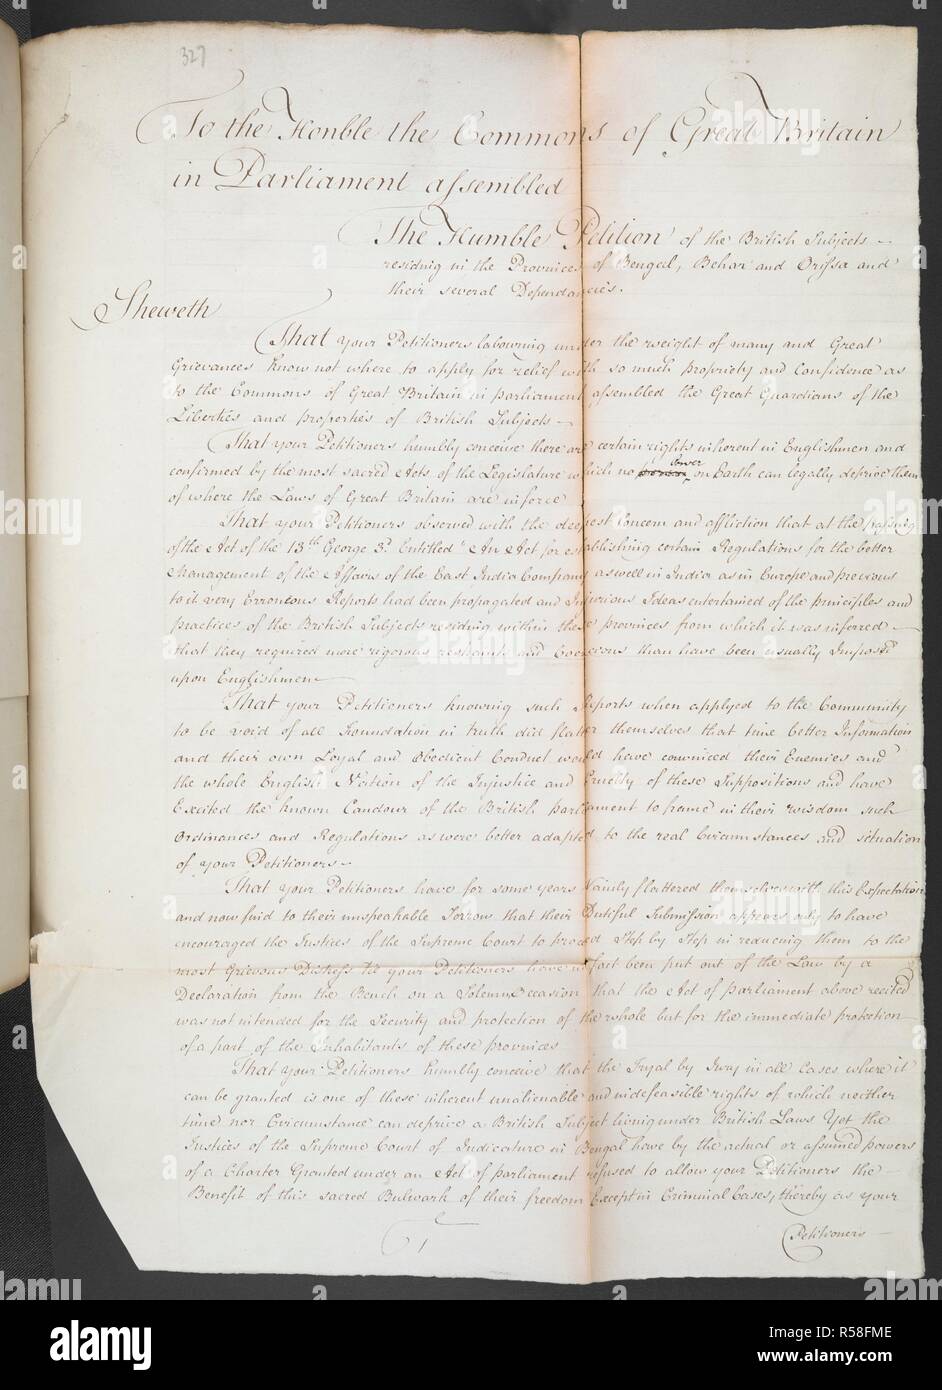 327
To the Honble the Commons of Great Britain
in Parliament assembled
The Humble Petition of the British Subjects
residing in the Provinces of Bengal, Behar and Orissa and
their several Dependancies.
Sheweth
That your Petitioners labouring under the weight of many and Great
Grievances know not where to apply for relief with so much propriety and confidence as
to the Commons of Great Britain in parliament assembled the Great Guardians of the
Liberties and properties of British Subjects
That your Petitioners humbly conceive there are certain rights inherent in Englishmen and
confirmed by the most sacred Acts of the Legislature which no Power on Earth can legally deprive them
of where the Laws of Great Britain are in force
That your Petitioners observed with the deepest Concern and affliction that at the passing
of the Act of the 13th George 3d. Entitled "An Act for establishing certain Regulations for the better
Management of the Affairs of the East India Company as well in India as in Europe and previous
to it very Erroneous Reports had been propagated and Injurious Ideas entertained of the principles and
practices of the British Subjects residing within these provinces from which it was inferred
that they required more rigorous restraint and Coercions than have been usually Imposed
upon Englishmen
That your Petitioners knowing such Reports when applyed to the Community
to be void of all Foundation in truth did flatter themselves that time better Information
and their own Loyal and Obedient Conduct would have convinced their Enemies and
the whole English Nation of the Injustice and Cruelty of these Suppositions and have
Excited the known Candour of the British parliament to frame in their wisdom such
Ordinances and Regulations as were better adapted to the real Circumstances and situation
of your Petitioners
That your Petitioners have for some years Vainly flattered themselves with this Expectation
and now find to their unspeakable Sorrow that their Dutiful Submission appears only to have
encouraged the Justices of the Supreme Court to proceed Step by Step in reducing them to the
most Grievous Distress. your Petitioners have in fact been put out of the Law by a
Declaration from the Bench on a Solemn Occasion that the Act of parliament above recited
was not intended for the Security and protection of the whole but for the immediate protection
of a part of the Inhabitants of these provinces
That your Petitioners humbly conceive that the Tryal by Jury in all Cases where it
can be granted is one of these inherent unalienable and indefeasible rights of which neither
time nor Circumstance can deprive a British Subject living under British Laws Yet the
Justices of the Supreme Court of Judicature in Bengal have by the actual or assumed powers
of a Charter Granted under an Act of parliament refused to allow your Petitioners the
Benefit of this sacred Bulwark of their freedom Except in Criminal Cases, thereby as your
Petitioners
alamy
Image ID: R58FME
www.alamy.com